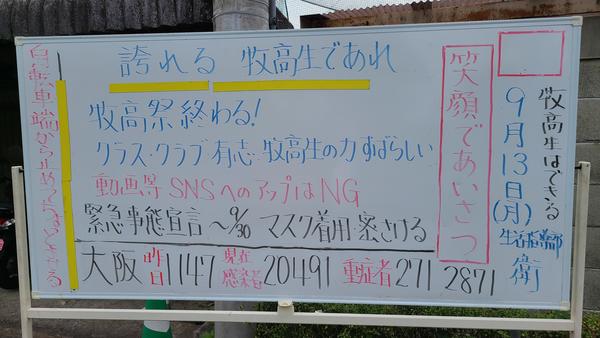 誇れる 牧高生であれ
牧高祭終わる!
クラス・クラブ・有志・牧高生の力すばらしい
動画等SNSへのアップはNG
緊急事態宣言〜9/30 マスク着用・密さける
大阪 昨日1147 現在感染者20491 重症者271 2871
笑顔であいさつ
牧高生はできる
9月13日(月)
生活指導部
衛
自転車端から止めて